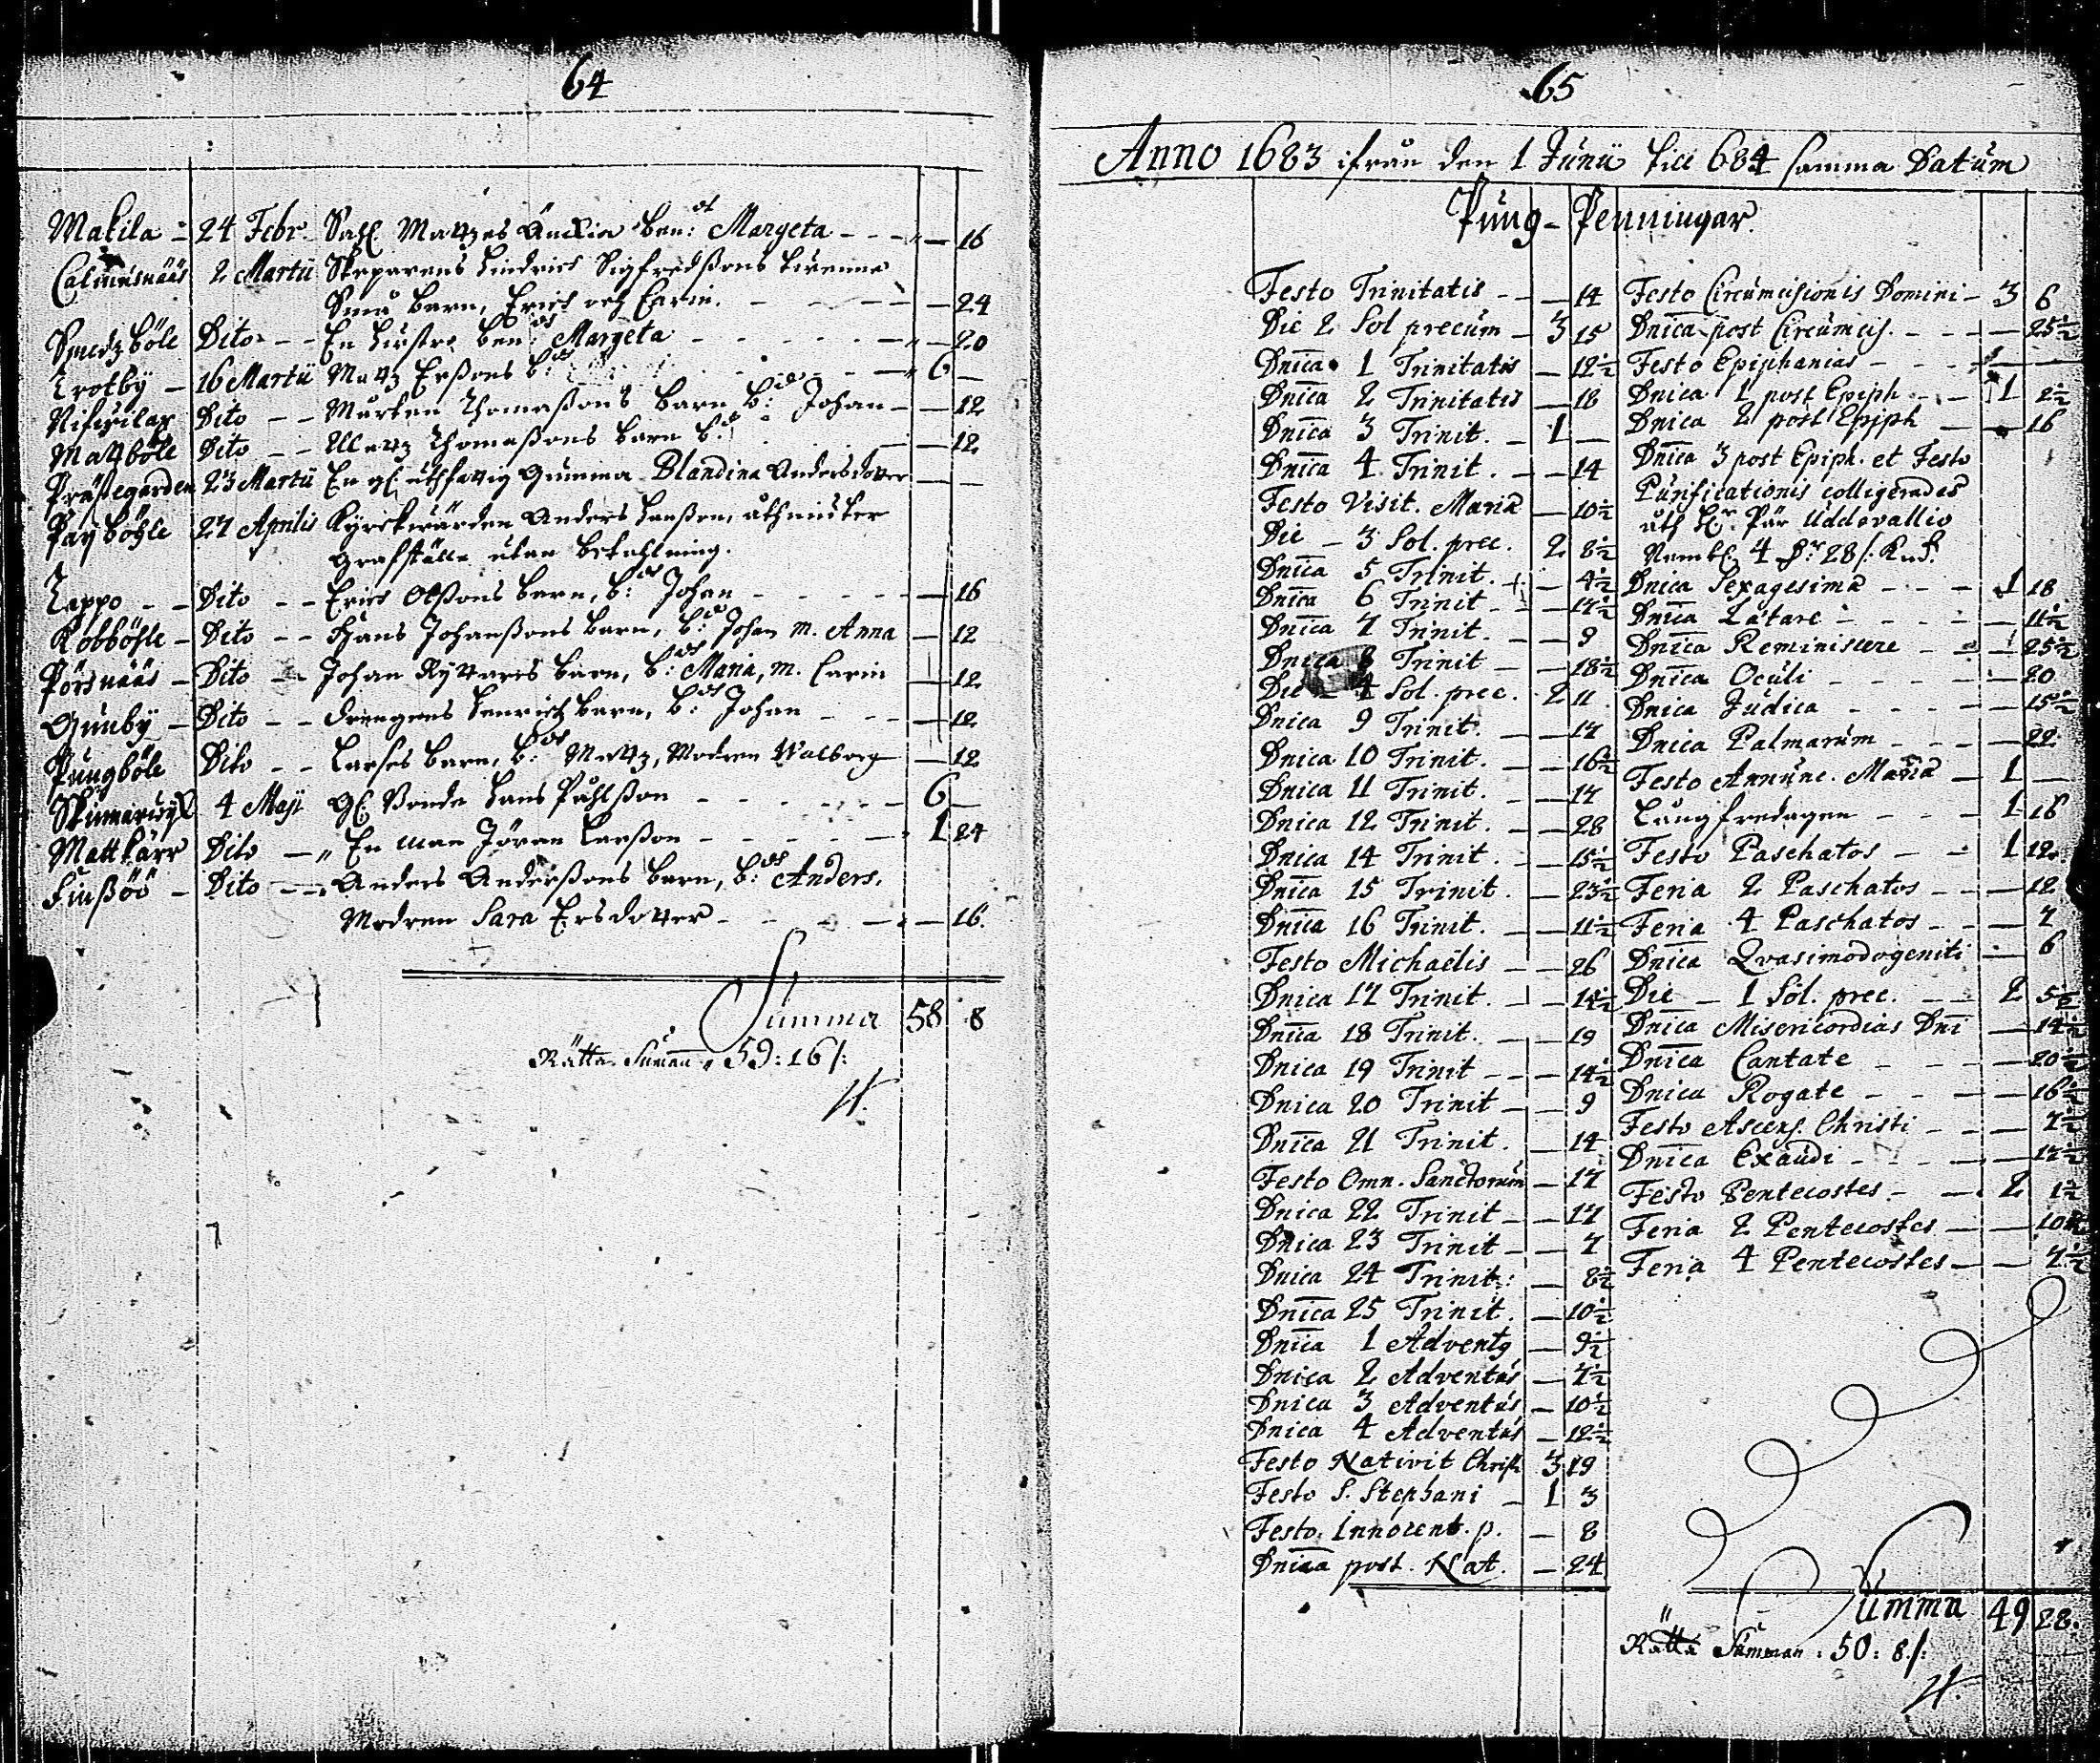 64
Makila - 24 Febr. Sahl. Mattzes Änckia ben:dt Margeta - - - " — 16
Calmusnääs 2 Martii Skeparens Hindrich Sigfredssons twenne
Små barn, Erich och Carin. - - - — 24
Smedzböle Dito - - En hustro ben:dt Margeta - - - - — " — 20
Trotby — 16 Martii Mattz Erssons b:ds - - - — " 6 —
Nifwilax Dito - - Mårten Thomassons barn b:d Johan — — 12
Mattböle Dito - - Mattz Thomassons barn b:d - - — 12
Prästegården 23 Martii En gl. uthfattig Gumma Blandina Andersdotter — —
Payböhle 27 Aprilis Kyrckwärden Anders Hansson, åthniuter
Grafställe utan betahlning.
Lappo - - Dito - - Erich Olssons barn, b:ds Johan - - - - — 16
Robböhle — Dito - - Hans Johanssons barn, b:d Johan m. Anna — 12
Pörsnääs — Dito - - Johan Ryttares barn, b:ds Maria, m. Carin — 12
Gunby — Dito - - drengens Henrich barn, b:ds Johan - - - — 12
Pungböle Dito - - Larses barn, b:ds Mattz, Modren Walborg — 12
Skinnarwyk 4 Maji Gl. Bonde Hans Påhlsson - - - - - 6 —
Mattkärr Dito — " En man Jöran Larsson - - - - — " 1 24
Finssöö — Dito — — Anders Anderssons barn, b:ds Anders,
Modren Sara Ersdotter - - - — — 16.
Summa 58 8
Rätta Suman " 59: 16 /:
65
Anno 1683 ifrån den 1 Junii till 684 samma Datum
Pung - Penningar.
Festo Trinitatis - - — 14
Die 2 Sol precum — 3 15
Dnica 1 Trinitatis — 12½
Dnica 2 Trinitatis — 18
Dnica 3 Trinit. — 1 —
Dnica 4 Trinit. - — 14
Festo Visit. Maria — 10½
Die — 3 Sol. prec. 2 8½
Dnica 5 Trinit. - — 4½
Dnica 6 Trinit - - — 17½
Dnica 7 Trinit. - — 9
Dnica 8 Trinit — — 18½
Die — 4 Sol. prec. 2 11
Dnica 9 Trinit. - — 17
Dnica 10 Trinit. - — 16½
Dnica 11 Trinit. - — 17
Dnica 12 Trinit. - — 28
Dnica 14 Trinit. - — 15½
Dnica 15 Trinit. — 23½
Dnica 16 Trinit. - — 11½
Festo Michaelis — — 26
Dnica 17 Trinit. - — 14½
Dnica 18 Trinit. — — 19
Dnica 19 Trinit - - — 14½
Dnica 20 Trinit — — 9
Dnica 21 Trinit. — 14
Festo Omn. Sanctorum — 17
Dnica 22 Trinit - — 17
Dnica 23 Trinit - — 7
Dnica 24 Trinit: — 8½
Dnica 25 Trinit. — 10½
Dnica 1 Adventg — 9½
Dnica 2 Adventús — 7½
Dnica 3 Adventús — 10½
Dnica 4 Adventús — 12½
Festo Nativit Christi 3 19
Festo S. Stephani — 1 3
Festo Innocent. p. — 8
Dnica post. Nat. — 24
Festo Circumcisionis Domini - 3 6
Dnica post Circumcis. - - — 25½
Festo Epiphanias — - - — —
Dnica 1 post Epiph - - 1 2½
Dnica 2 post Epiph — — 16
Dnica 3 post Epiph. et Festo
Purificationis colligerades
uth Hr. Pär Uddevallio
Nembl. 4 Dr 28 /: Kmt.
Dnica Sexagesima - - - 1 18
Dnica Lätare - - - - — 11½
Dnica Reminiscere - - — 25½
Dnica Oculi - - - - — 20
Dnica Judica - - - - — 15½
Dnica Palmarum - - - — 22
Festo Annunc. Maria — 1 —
Långfredagen - - - 1 16
Festo Paschatos — - 1 12
Feria 2 Paschatos - - — 12
Feria 4 Paschatos - - — 7
Dnica Qvasimodogeniti — 6
Die — 1 Sol. prec. - - 2 5½
Dnica Misericordias Dni — 14½
Dnica Cantate - - - — 20½
Dnica Rogate - - — — 16½
Festo Ascens. Christi - - — 7½
Dnica Exaudi - - - - — 17½
Festo Pentecostes - — 2 1½
Feria 2 Pentecostes — — 10½
Feria 4 Pentecostes — — 7½
Summa 49 28.
Rätta Summan: 50: 8./: